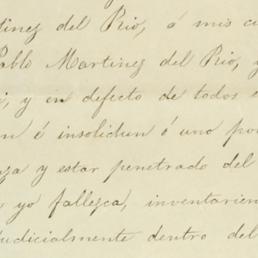 tinez del Rio, á mis cu
Pablo Martinez del Rio, y
i, y en defecto de todos e
un é insolidun ó uno por
aya y estar penetrado del
yo fallezca, inventarien
judicialmente dentro del